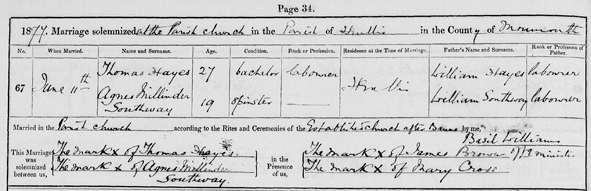 Page 34.
1877. Marriage solemnized at the Parish church in the Parish of in the County of Monmouth
No. When Married. Name and Surname. Age. Condition. Rank or Profession. Residence at the Time of Marriage. Father's Name and Surname. Rank or Profession of Father.
67 June 11th Thomas Hayes 27 bachelor labourer William Hayes labourer
Agnes Millinder Southway 19 spinster — William Southway labourer
Married in the Parish church according to the Rites and Ceremonies of the Established Church after Banns by me,
Basil Williams
This Marriage was solemnized between us, The mark X of Thomas Hayes
The mark X of Agnes Millinder Southway
in the Presence of us, The mark X of James Brown minister
The mark X of Mary Cross